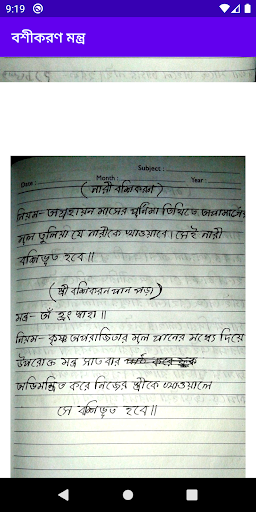 9:19
বশীকরণ মন্ত্র
Subject :
Date : Month : Year :
(নারী বশিকরণ)
নিয়ম- অগ্রহায়ন মাসের পূর্নিমা তিথিতে অপামার্গের
মূল তুলিয়া যে নারীকে খাওয়াবে। সেই নারী
বশিভূত হবে॥
(স্ত্রী বশিকরন পান পড়া)
মন্ত্র- ওঁ হ্রং স্বাহা॥
নিয়ম- কৃষ্ণ অপরাজিতার মূল পানের মধ্যে দিয়ে
উপরোক্ত মন্ত্র সাতবার
অভিমন্ত্রিত করে নিজের স্ত্রীকে খাওয়ালে
সে বশিভূত হবে॥